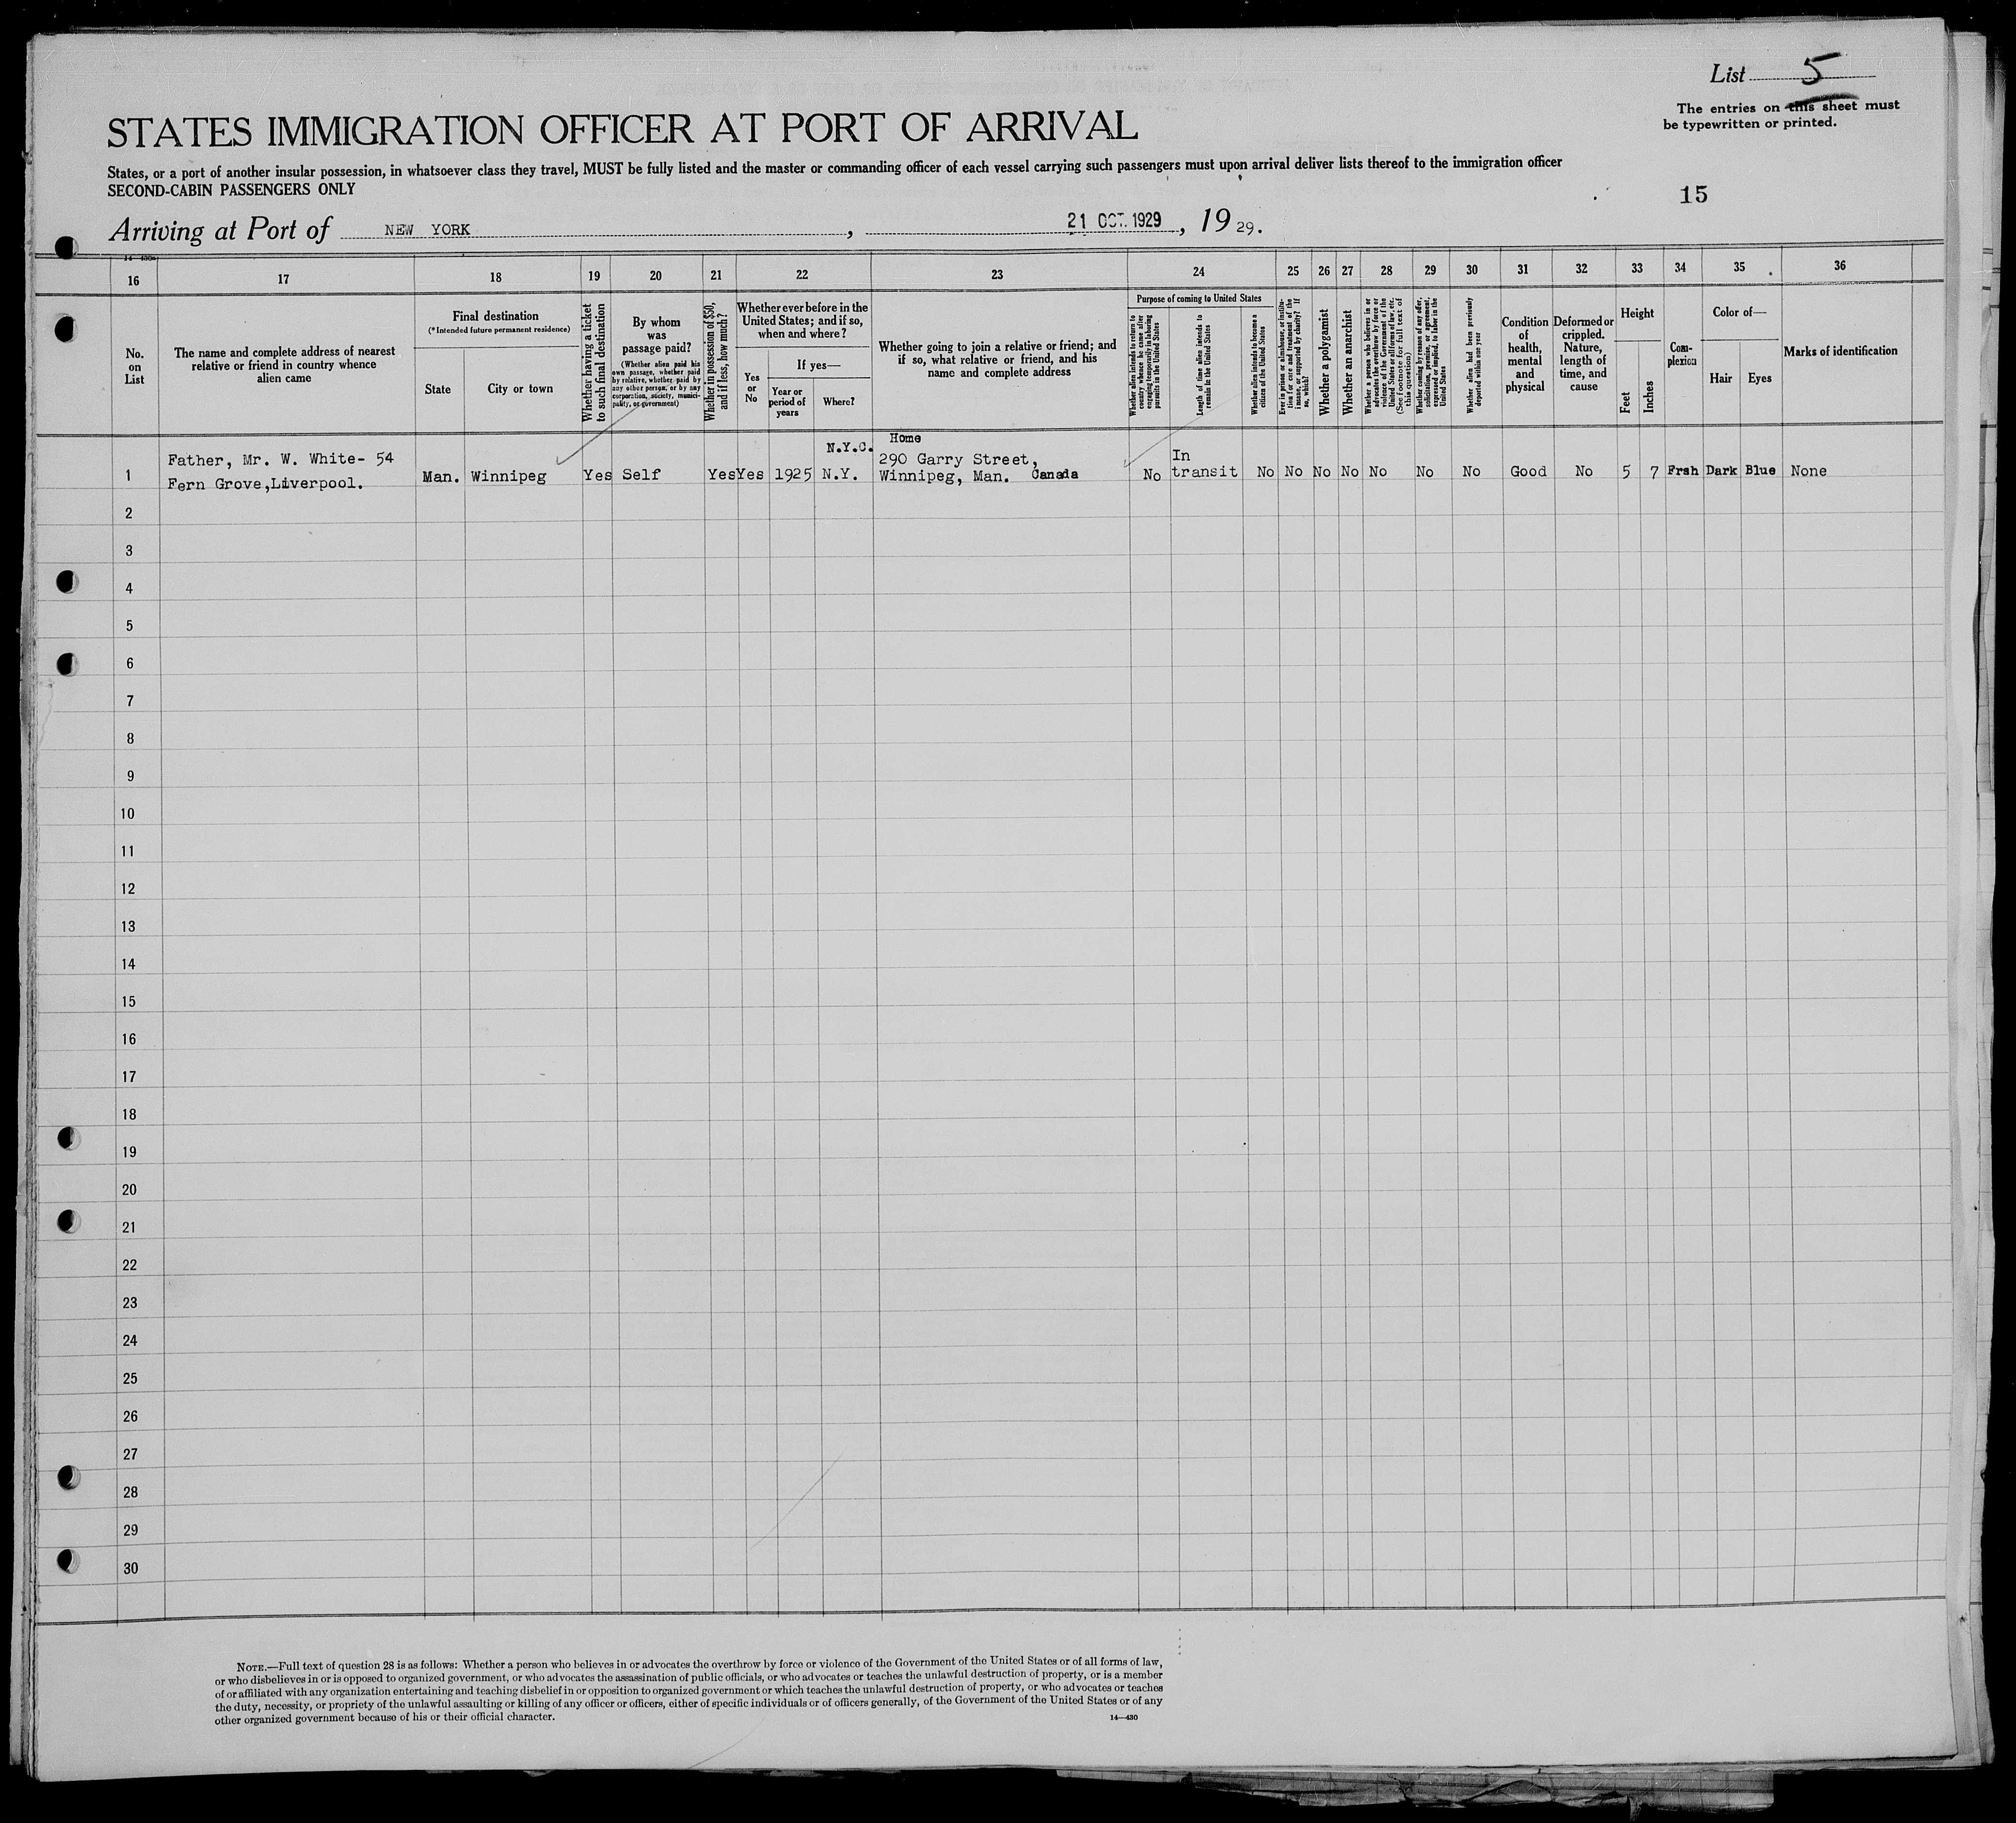 List 5
The entries on this sheet must
be typewritten or printed.
STATES IMMIGRATION OFFICER AT PORT OF ARRIVAL
States, or a port of another insular possession, in whatsoever class they travel, MUST be fully listed and the master or commanding officer of each vessel carrying such passengers must upon arrival deliver lists thereof to the immigration officer
SECOND-CABIN PASSENGERS ONLY
15
Arriving at Port of NEW YORK, 21 OCT. 1929, 19 29.
16 17 18 19 20 21 22 23 24 25 26 27 28 29 30 31 32 33 34 35 36
No.
on
List
The name and complete address of nearest
relative or friend in country whence
alien came
Final destination
(*Intended future permanent residence)
State
City or town
Whether having a ticket
to such final destination
By whom
was
passage paid?
(Whether alien paid his
own passage, whether paid
by relative, whether paid by
any other person, or by any
corporation, society, munici-
pality, or government)
Whether in possession of $50,
and if less, how much?
Whether ever before in the
United States; and if so,
when and where?
Yes
or
No
If yes—
Year or
period of
years
Where?
Whether going to join a relative or friend; and
if so, what relative or friend, and his
name and complete address
Purpose of coming to United States
Whether alien intends to return to
country whence he came after
engaging temporarily in laboring
pursuits in the United States
Length of time alien intends to
remain in the United States
Whether alien intends to become a
citizen of the United States
Ever in prison or almshouse, or institu-
tion for care and treatment of the
insane, or supported by charity? If
so, which?
Whether a polygamist
Whether an anarchist
Whether a person who believes in or
advocates the overthrow by force or
violence of the Government of the
United States or all forms of law, etc.
(See footnote for full text of
this question)
Whether coming by reason of any offer,
solicitation, promise, or agreement,
expressed or implied, to labor in the
United States
Whether alien had been previously
deported within one year
Condition
of
health,
mental
and
physical
Deformed or
crippled.
Nature,
length of
time, and
cause
Height
Feet
Inches
Com-
plexion
Color of—
Hair
Eyes
Marks of identification
1
Father, Mr. W. White- 54
Fern Grove,Liverpool.
Man. Winnipeg Yes Self Yes Yes 1925
N.Y.C.
N.Y.
Home
290 Garry Street,
Winnipeg, Man. Canada
No
In
transit
No No No No No No No Good No 5 7 Frsh Dark Blue None
2
3
4
5
6
7
8
9
10
11
12
13
14
15
16
17
18
19
20
21
22
23
24
25
26
27
28
29
30
NOTE.—Full text of question 28 is as follows: Whether a person who believes in or advocates the overthrow by force or violence of the Government of the United States or of all forms of law,
or who disbelieves in or is opposed to organized government, or who advocates the assassination of public officials, or who advocates or teaches the unlawful destruction of property, or is a member
of or affiliated with any organization entertaining and teaching disbelief in or opposition to organized government or which teaches the unlawful destruction of property, or who advocates or teaches
the duty, necessity, or propriety of the unlawful assaulting or killing of any officer or officers, either of specific individuals or of officers generally, of the Government of the United States or of any
other organized government because of his or their official character.
14—430